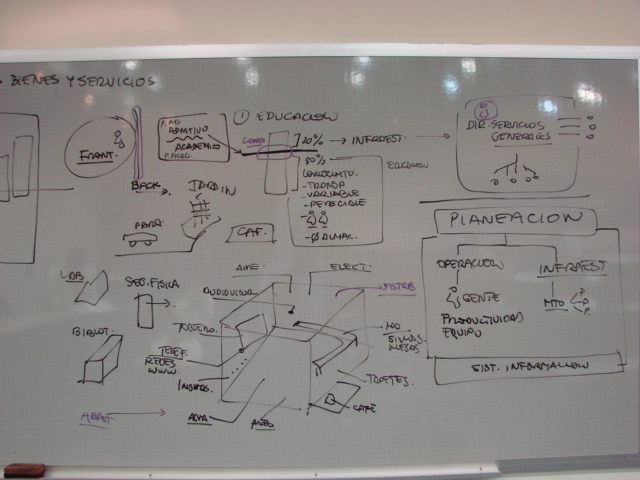 • BIENES Y SERVICIOS
FRONT.
BACK
P. AD.
ADMTIVO
ACADEMICO
P. ACAD.
① EDUCACION
20% → INFRAEST.
80%
EDUCACION
- TRANSF
- VARIABLE
- PERECIBLE
- Ø ALMAC.
DIR. SERVICIOS
GENERALES
JARDIN
CAF.
PLANEACION
OPERACION
GENTE
PRODUCTIVIDAD
EQUIPO
INFRAEST
MTO
P.
P.
SIST. INFORMACION
LAB
SEG. FISICA
BIBLIOT.
AIRE
ELECT.
AUDIOVISUAL
DISTRIB
TABLERO
MO
SILLAS
MESAS
TELEF.
REDES
WWW.
TAPETES
CAFE
AGUA
ASEO